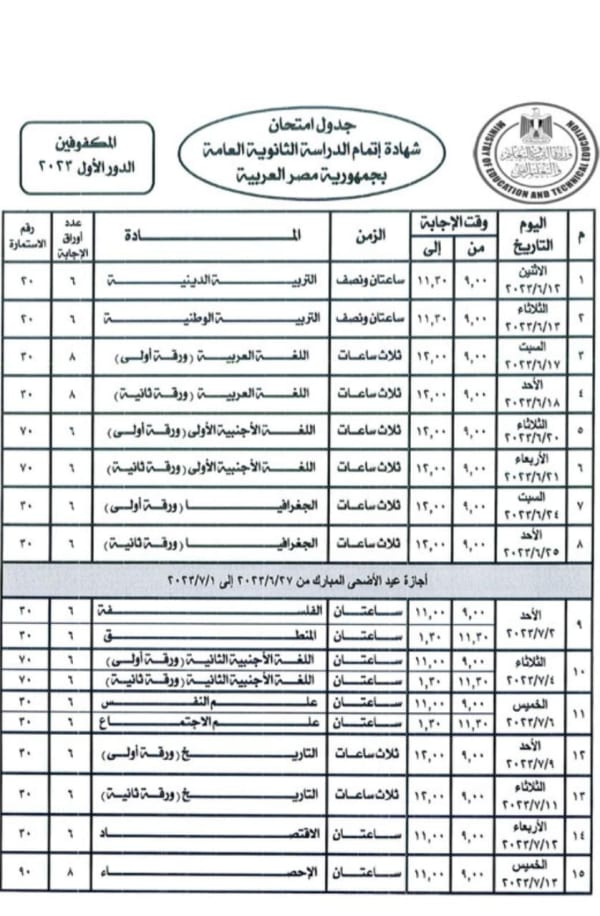 جدول امتحان
شهادة إتمام الدراسة الثانوية العامة
بجمهورية مصر العربية
المكفوفين
الدور الأول ٢٠٢٣
MINISTRY OF EDUCATION AND TECHNICAL EDUCATION
وزارة التربية والتعليم
والتعليم الفني
م اليوم التاريخ وقت الإجابة من إلى الزمن المـــادة عدد أوراق الإجابة رقم الاستمارة
١ الاثنين ٢٠٢٣/٦/١٢ ٩,٠٠ ١١,٣٠ ساعتان ونصف التربية الدينية ٦ ٢٠
٢ الثلاثاء ٢٠٢٣/٦/١٣ ٩,٠٠ ١١,٣٠ ساعتان ونصف التربية الوطنية ٦ ٢٠
٣ السبت ٢٠٢٣/٦/١٧ ٩,٠٠ ١٢,٠٠ ثلاث ساعات اللغة العربية (ورقة أولى) ٨ ٣٠
٤ الأحد ٢٠٢٣/٦/١٨ ٩,٠٠ ١٢,٠٠ ثلاث ساعات اللغة العربية (ورقة ثانية) ٨ ٣٠
٥ الثلاثاء ٢٠٢٣/٦/٢٠ ٩,٠٠ ١٢,٠٠ ثلاث ساعات اللغة الأجنبية الأولى (ورقة أولى) ٦ ٧٠
٦ الأربعاء ٢٠٢٣/٦/٢١ ٩,٠٠ ١٢,٠٠ ثلاث ساعات اللغة الأجنبية الأولى (ورقة ثانية) ٦ ٧٠
٧ السبت ٢٠٢٣/٦/٢٤ ٩,٠٠ ١٢,٠٠ ثلاث ساعات الجغرافيا (ورقة أولى) ٦ ٣٠
٨ الأحد ٢٠٢٣/٦/٢٥ ٩,٠٠ ١٢,٠٠ ثلاث ساعات الجغرافيا (ورقة ثانية) ٦ ٣٠
أجازة عيد الأضحى المبارك من ٢٠٢٣/٦/٢٧ إلى ٢٠٢٣/٧/١
٩ الأحد ٢٠٢٣/٧/٢ ٩,٠٠ ١١,٠٠ ساعتان الفلسفة ٦ ٣٠
١١,٣٠ ١,٣٠ ساعتان المنطق ٦ ٣٠
١٠ الثلاثاء ٢٠٢٣/٧/٤ ٩,٠٠ ١١,٠٠ ساعتان اللغة الأجنبية الثانية (ورقة أولى) ٦ ٧٠
١١,٣٠ ١,٣٠ ساعتان اللغة الأجنبية الثانية (ورقة ثانية) ٦ ٧٠
١١ الخميس ٢٠٢٣/٧/٦ ٩,٠٠ ١١,٠٠ ساعتان علم النفس ٦ ٣٠
١١,٣٠ ١,٣٠ ساعتان علم الاجتماع ٦ ٣٠
١٢ الأحد ٢٠٢٣/٧/٩ ٩,٠٠ ١٢,٠٠ ثلاث ساعات التاريخ (ورقة أولى) ٦ ٣٠
١٣ الثلاثاء ٢٠٢٣/٧/١١ ٩,٠٠ ١٢,٠٠ ثلاث ساعات التاريخ (ورقة ثانية) ٦ ٣٠
١٤ الأربعاء ٢٠٢٣/٧/١٢ ٩,٠٠ ١١,٠٠ ساعتان الاقتصاد ٦ ٣٠
١٥ الخميس ٢٠٢٣/٧/١٣ ٩,٠٠ ١١,٠٠ ساعتان الإحصاء ٨ ٩٠